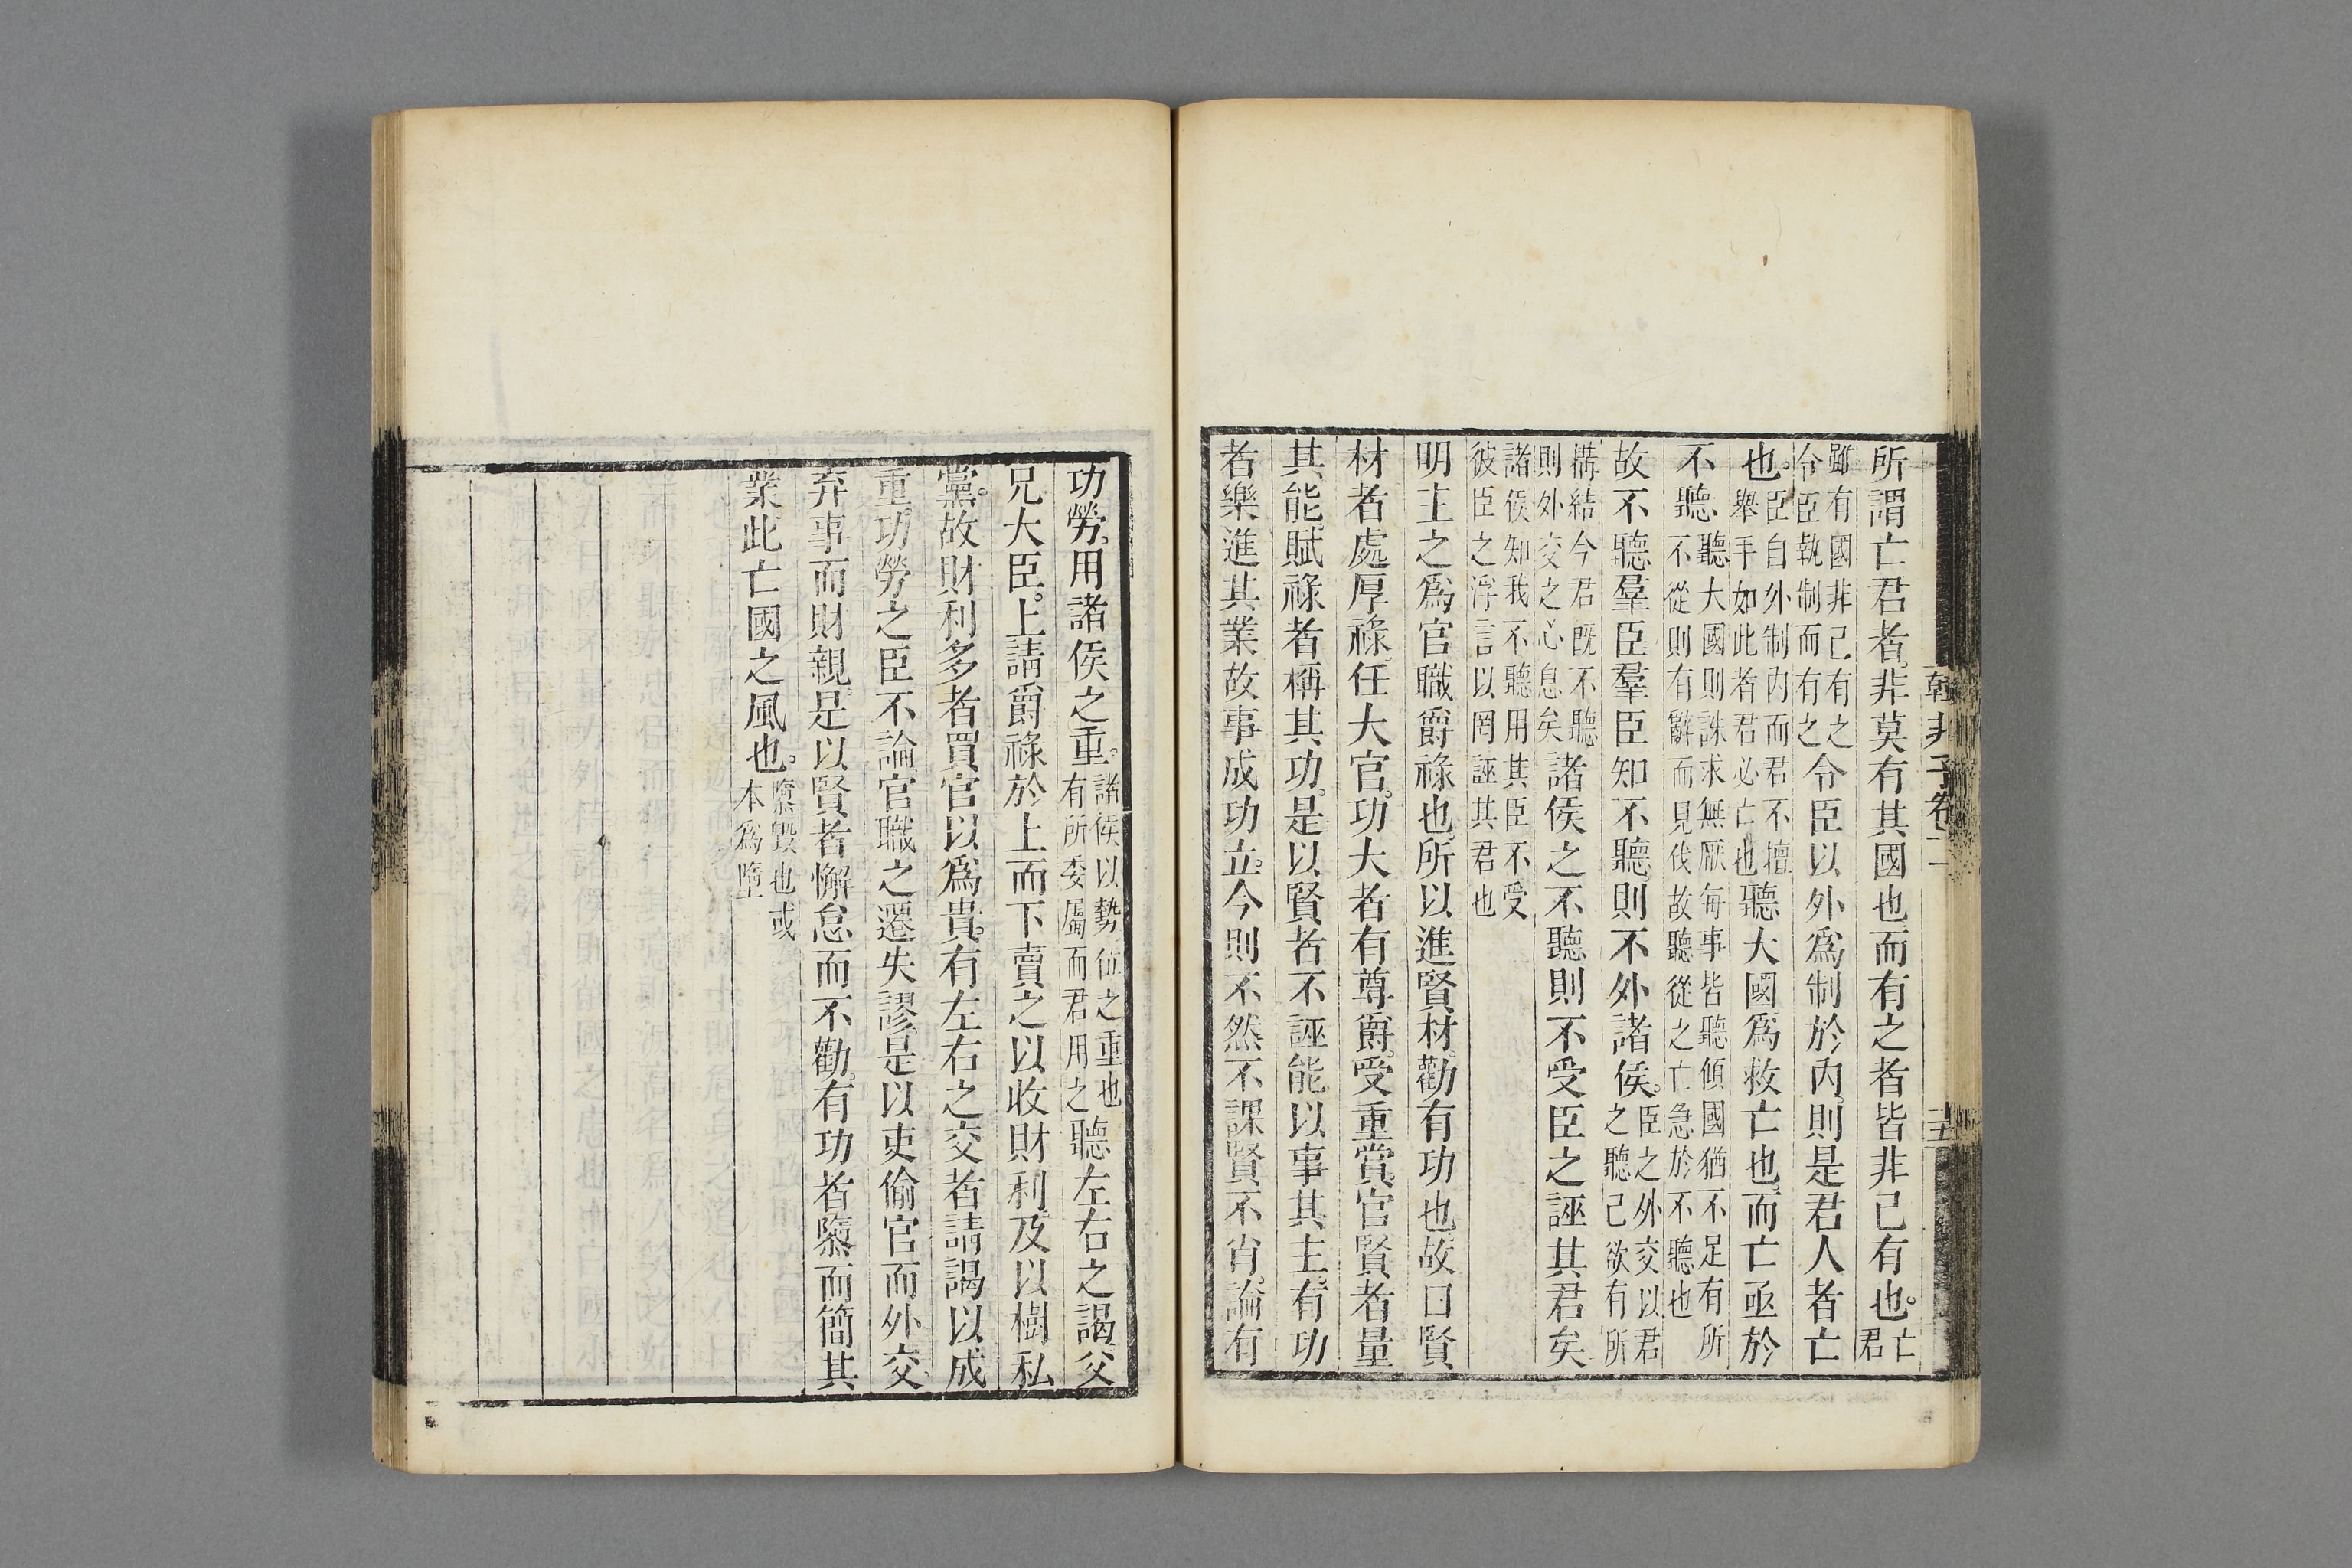 韓非子卷二
所謂亡君者非莫有其國也而有之者皆非己有也亡君
雖有國非己有之令臣執制而有之令臣以外爲制於內則是君人者亡
也臣自外制內而君不擅舉手如此者君必亡也聽大國爲救亡也而亡亟於
不聽聽大國則誅求無厭每事皆聽傾國猶不足有所不從則有辭而見伐故聽從之亡急於不聽也
故不聽羣臣羣臣知不聽則不外諸侯臣之外交以君之聽己欲有所
構結今君旣不聽則外交之心息矣諸侯之不聽則不受臣之誣其君矣
諸侯知我不聽用其臣不受彼臣之浮言以罔誣其君也
明主之爲官職爵祿也所以進賢材勸有功也故曰賢
材者處厚祿任大官功大者有尊爵受重賞官賢者量
其能賦祿者稱其功是以賢者不誣能以事其主有功
者樂進其業故事成功立今則不然不課賢不肖論有
功勞用諸侯之重諸侯以勢位之重也有所委屬而君用之聽左右之謁父
兄大臣上請爵祿於上而下賣之以收財利及以樹私
黨故財利多者買官以爲貴有左右之交者請謁以成
重功勞之臣不論官職之遷失謬是以吏偷官而外交
弃事而財親是以賢者懈怠而不勸有功者隳而簡其
業此亡國之風也隳毀也或本爲墮